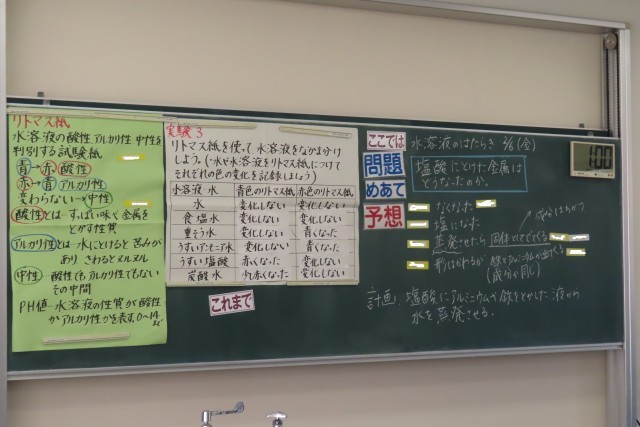 リトマス紙
水溶液の酸性 アルカリ性 中性を
判別する試験紙
青→赤 酸性
赤→青 アルカリ性
変わらない→中性
酸性とは…すっぱい味く金属を
とかす性質
アルカリ性とは…水にとけると苦みが
あり さわるとヌルヌル
中性 酸性でもアルカリ性でもない
その中間
PH値…水溶液の性質が酸性
かアルカリ性かを表す。0〜14
まで
実験3
リトマス紙を使って水溶液をなかま分け
しよう。(水や水溶液をリトマス紙につけて
それぞれの色の変化を記録しましょう)
水溶液 水 青色のリトマス紙 赤色のリトマス紙
水 変化しない 変化しない
食塩水 変化しない 変化しない
重そう水 変化しない 青くなった
うすいアンモニア水 変化しない 青くなった
うすい塩酸 赤くなった 変化しない
炭酸水 少し赤くなった 変化しない
これまで
ここでは 水溶液のはたらき 2/6(金)
問題 塩酸にとけた金属は
どうなったのか。
めあて
予想 なくなった
塩になった
蒸発させたら 固体としてでてくる
形はかわるが 鉄とアルミニウムが出てくる
(成分は同じ)
計画 塩酸にアルミニウムや鉄をとかした液から
水を蒸発させる。
1:00